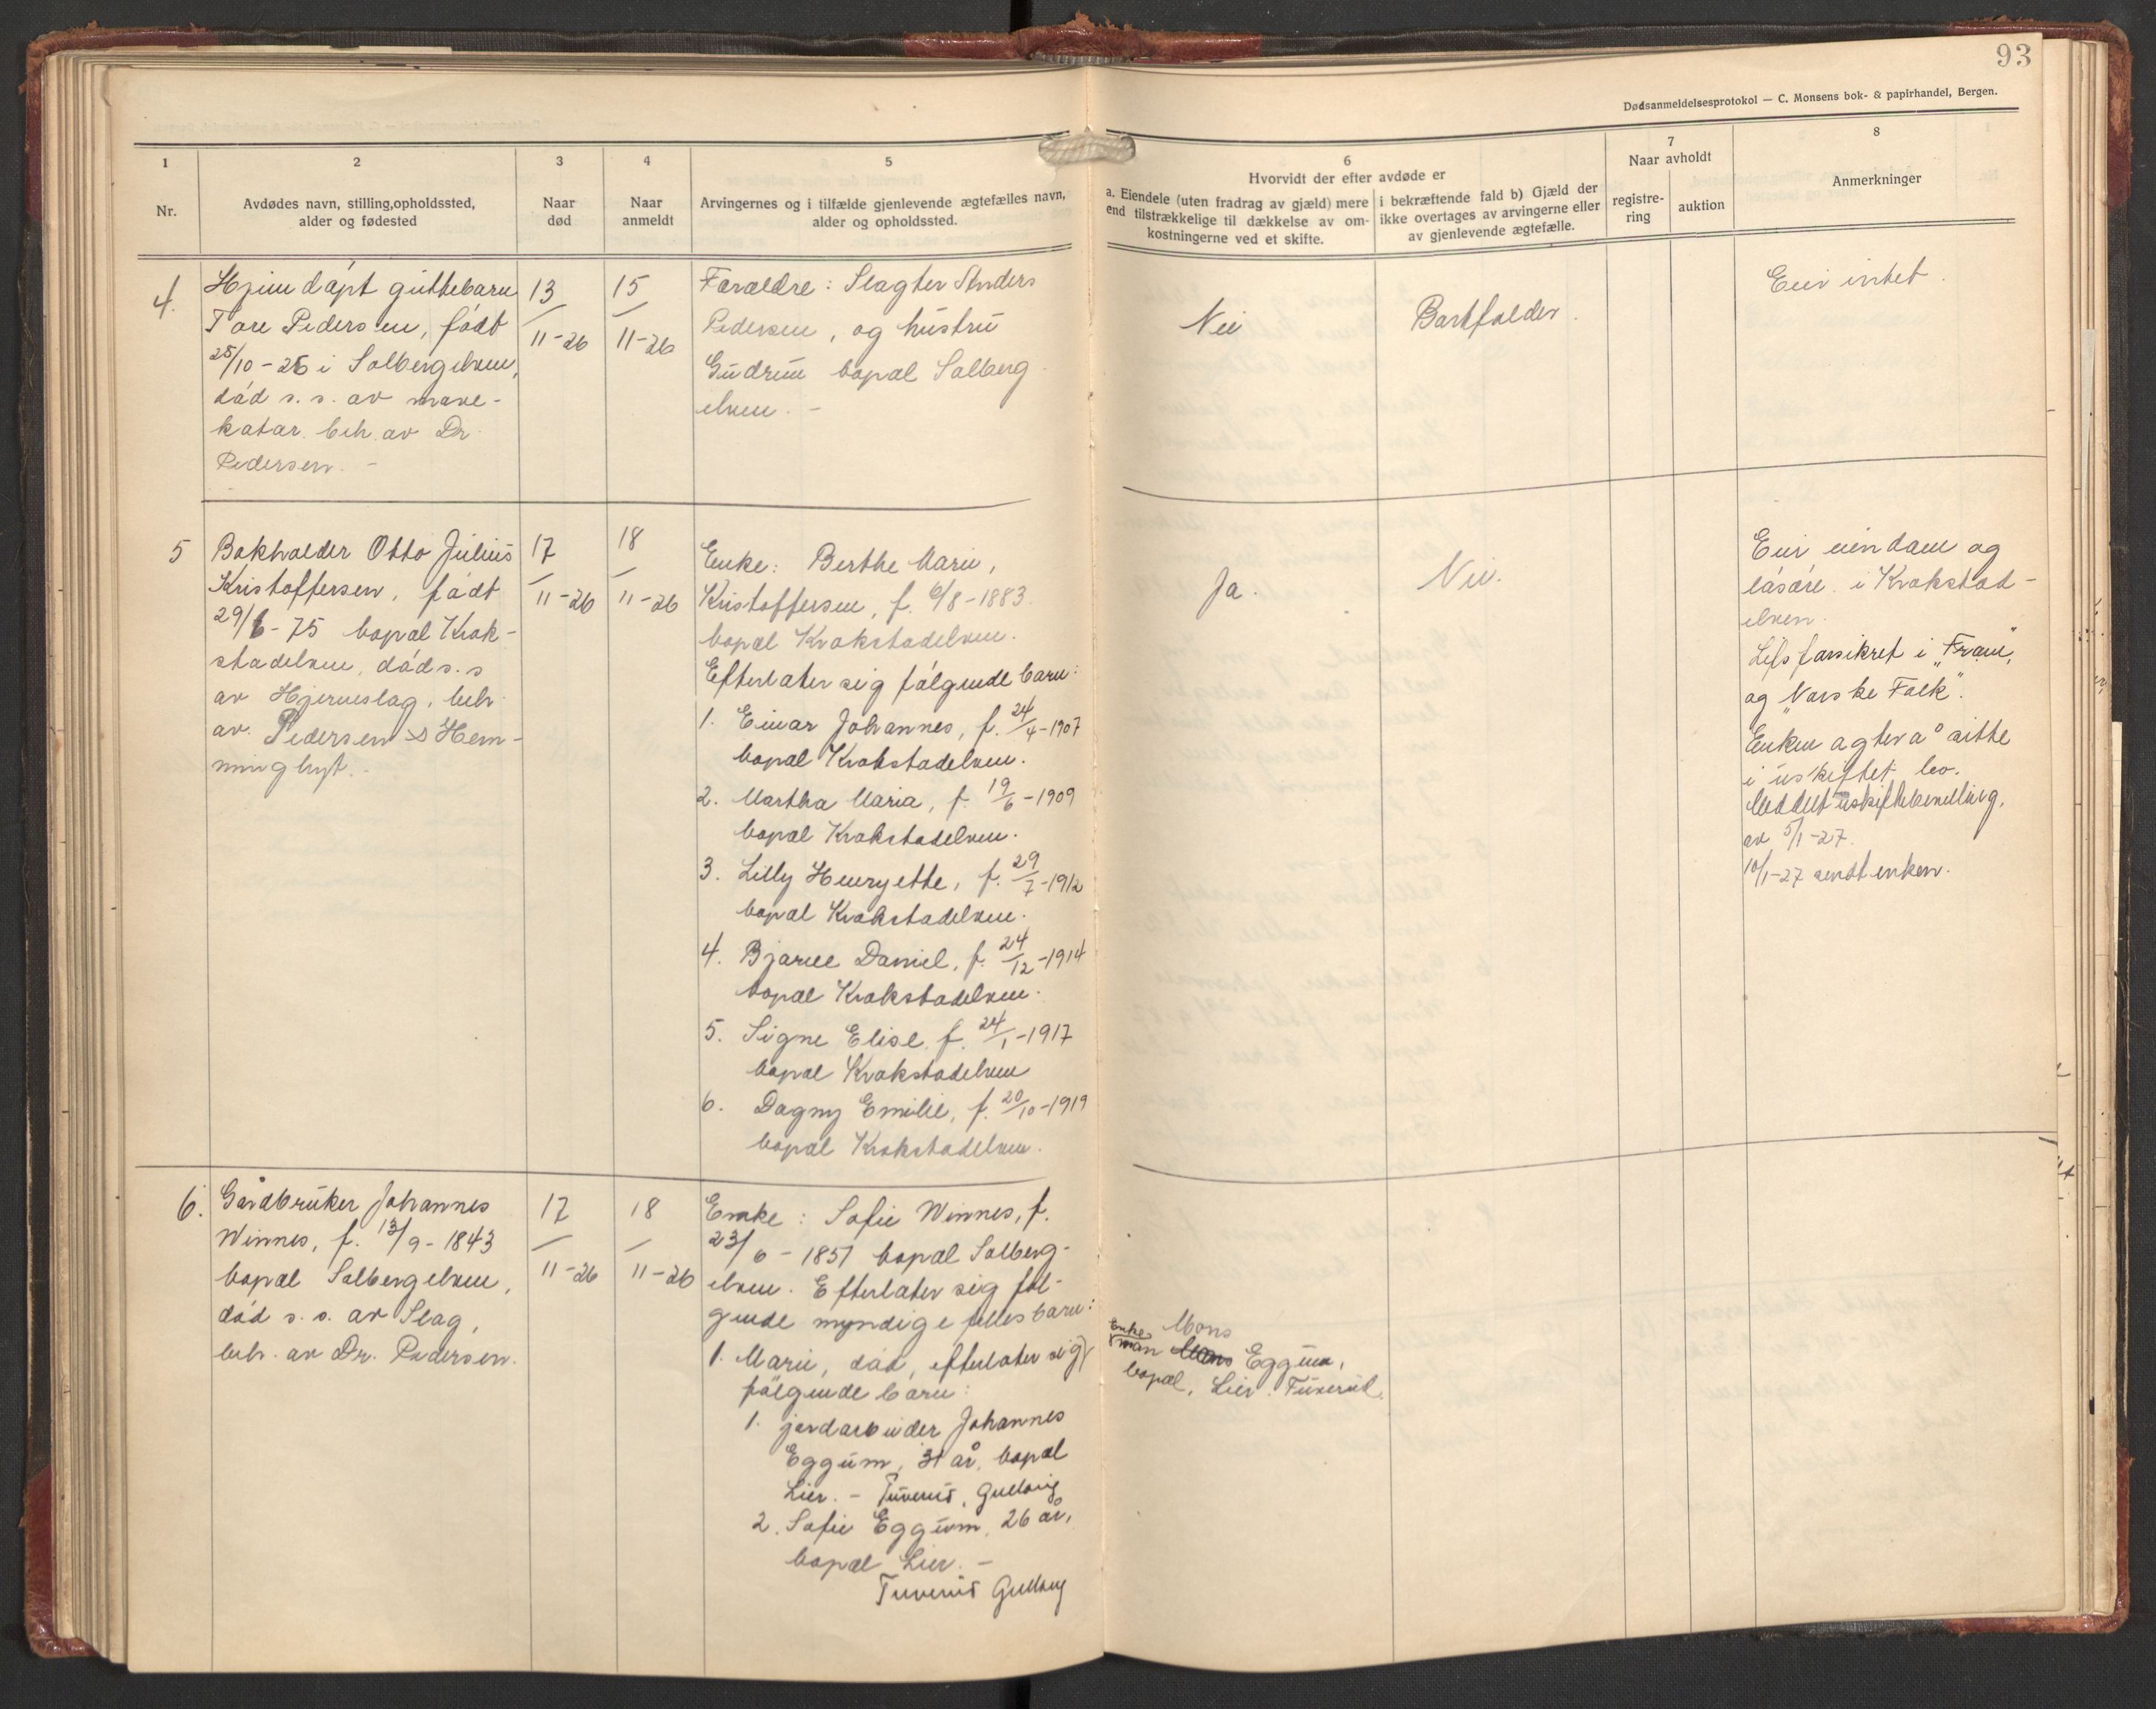 93
Dødsanmeldelsesprotokol — C. Monsens bok- & papirhandel, Bergen.
1
Nr.
2
Avdødes navn, stilling, opholdssted,
alder og fødested
3
Naar
død
4
Naar
anmeldt
5
Arvingernes og i tilfælde gjenlevende ægtefælles navn,
alder og opholdssted.
6
Hvorvidt der efter avdøde er
a. Eiendele (uten fradrag av gjæld) mere
end tilstrækkelige til dækkelse av om-
kostningerne ved et skifte.
i bekræftende fald b) Gjæld der
ikke overtages av arvingerne eller
av gjenlevende ægtefælle.
7
Naar avholdt
registre-
ring
auktion
8
Anmerkninger
4.
Hjemdøpt guttebarn
Tore Pedersen, født
25/10-26 i Solbergelven,
død s. s. av mave-
katar. beh. av Dr.
Pedersen. -
13/11-26
15/11-26
Forældre: Slagter Anders
Pedersen, og hustru
Gudrun bopæl Solberg-
elven. -
Nei
Bortfalder.
Eier intet.
5
Bokholder Otto Julius
Kristoffersen, født
29/6-75 bopæl Krok-
stadelven, død s. s
av Hjerneslag, beh.
av. Pedersen & Hem-
minghyt.
17/11-26
18/11-26
Enke: Berthe Marie,
Kristoffersen, f. 6/8-1883.
bopæl Krokstadelven.
Efterlater sig følgende barn:
1. Einar Johannes, f. 24/4-1907
bopæl Krokstadelven.
2. Martha Maria, f. 19/6-1909
bopæl Krokstadelven.
3. Lilly Henryette, f. 29/7-1912
bopæl Krokstadelven.
4. Bjarne Daniel, f. 24/12-1914
bopæl Krokstadelven.
5. Signe Elise, f. 24/1-1917
bopæl Krokstadelven
6. Dagny Emilie, f. 20/10-1919
bopæl Krokstadelven.
Ja.
Nei.
Eier eiendom og
løsøre i Krokstad-
elven.
Lifsforsikret i "Fram",
og "Norske Folk".
Enken agter å sitte
i uskiftet bo.
Meddelt uskiftebevilling.
av 5/1-27.
10/1-27 sendt enken.
6.
Gårdbruker Johannes
Winnes, f. 13/9-1843
bopæl Solbergelven,
død s. s. av Slag,
beh. av Dr. Pedersen.
17/11-26
18/11-26
Enke: Sofie Winnes, f.
23/6-1851 bopæl Solberg-
elven. Efterlater sig føl-
gende myndige fellesbarn:
1. Marie, død, efterlater sig
følgende barn:
1. jordarbeider Johannes
Eggum, 31 år, bopæl
Lier. -
2. Sofie Eggum, 26 år,
bopæl Lier. -
Enke Mons
man Mons Eggum,
bopæl, Lier.